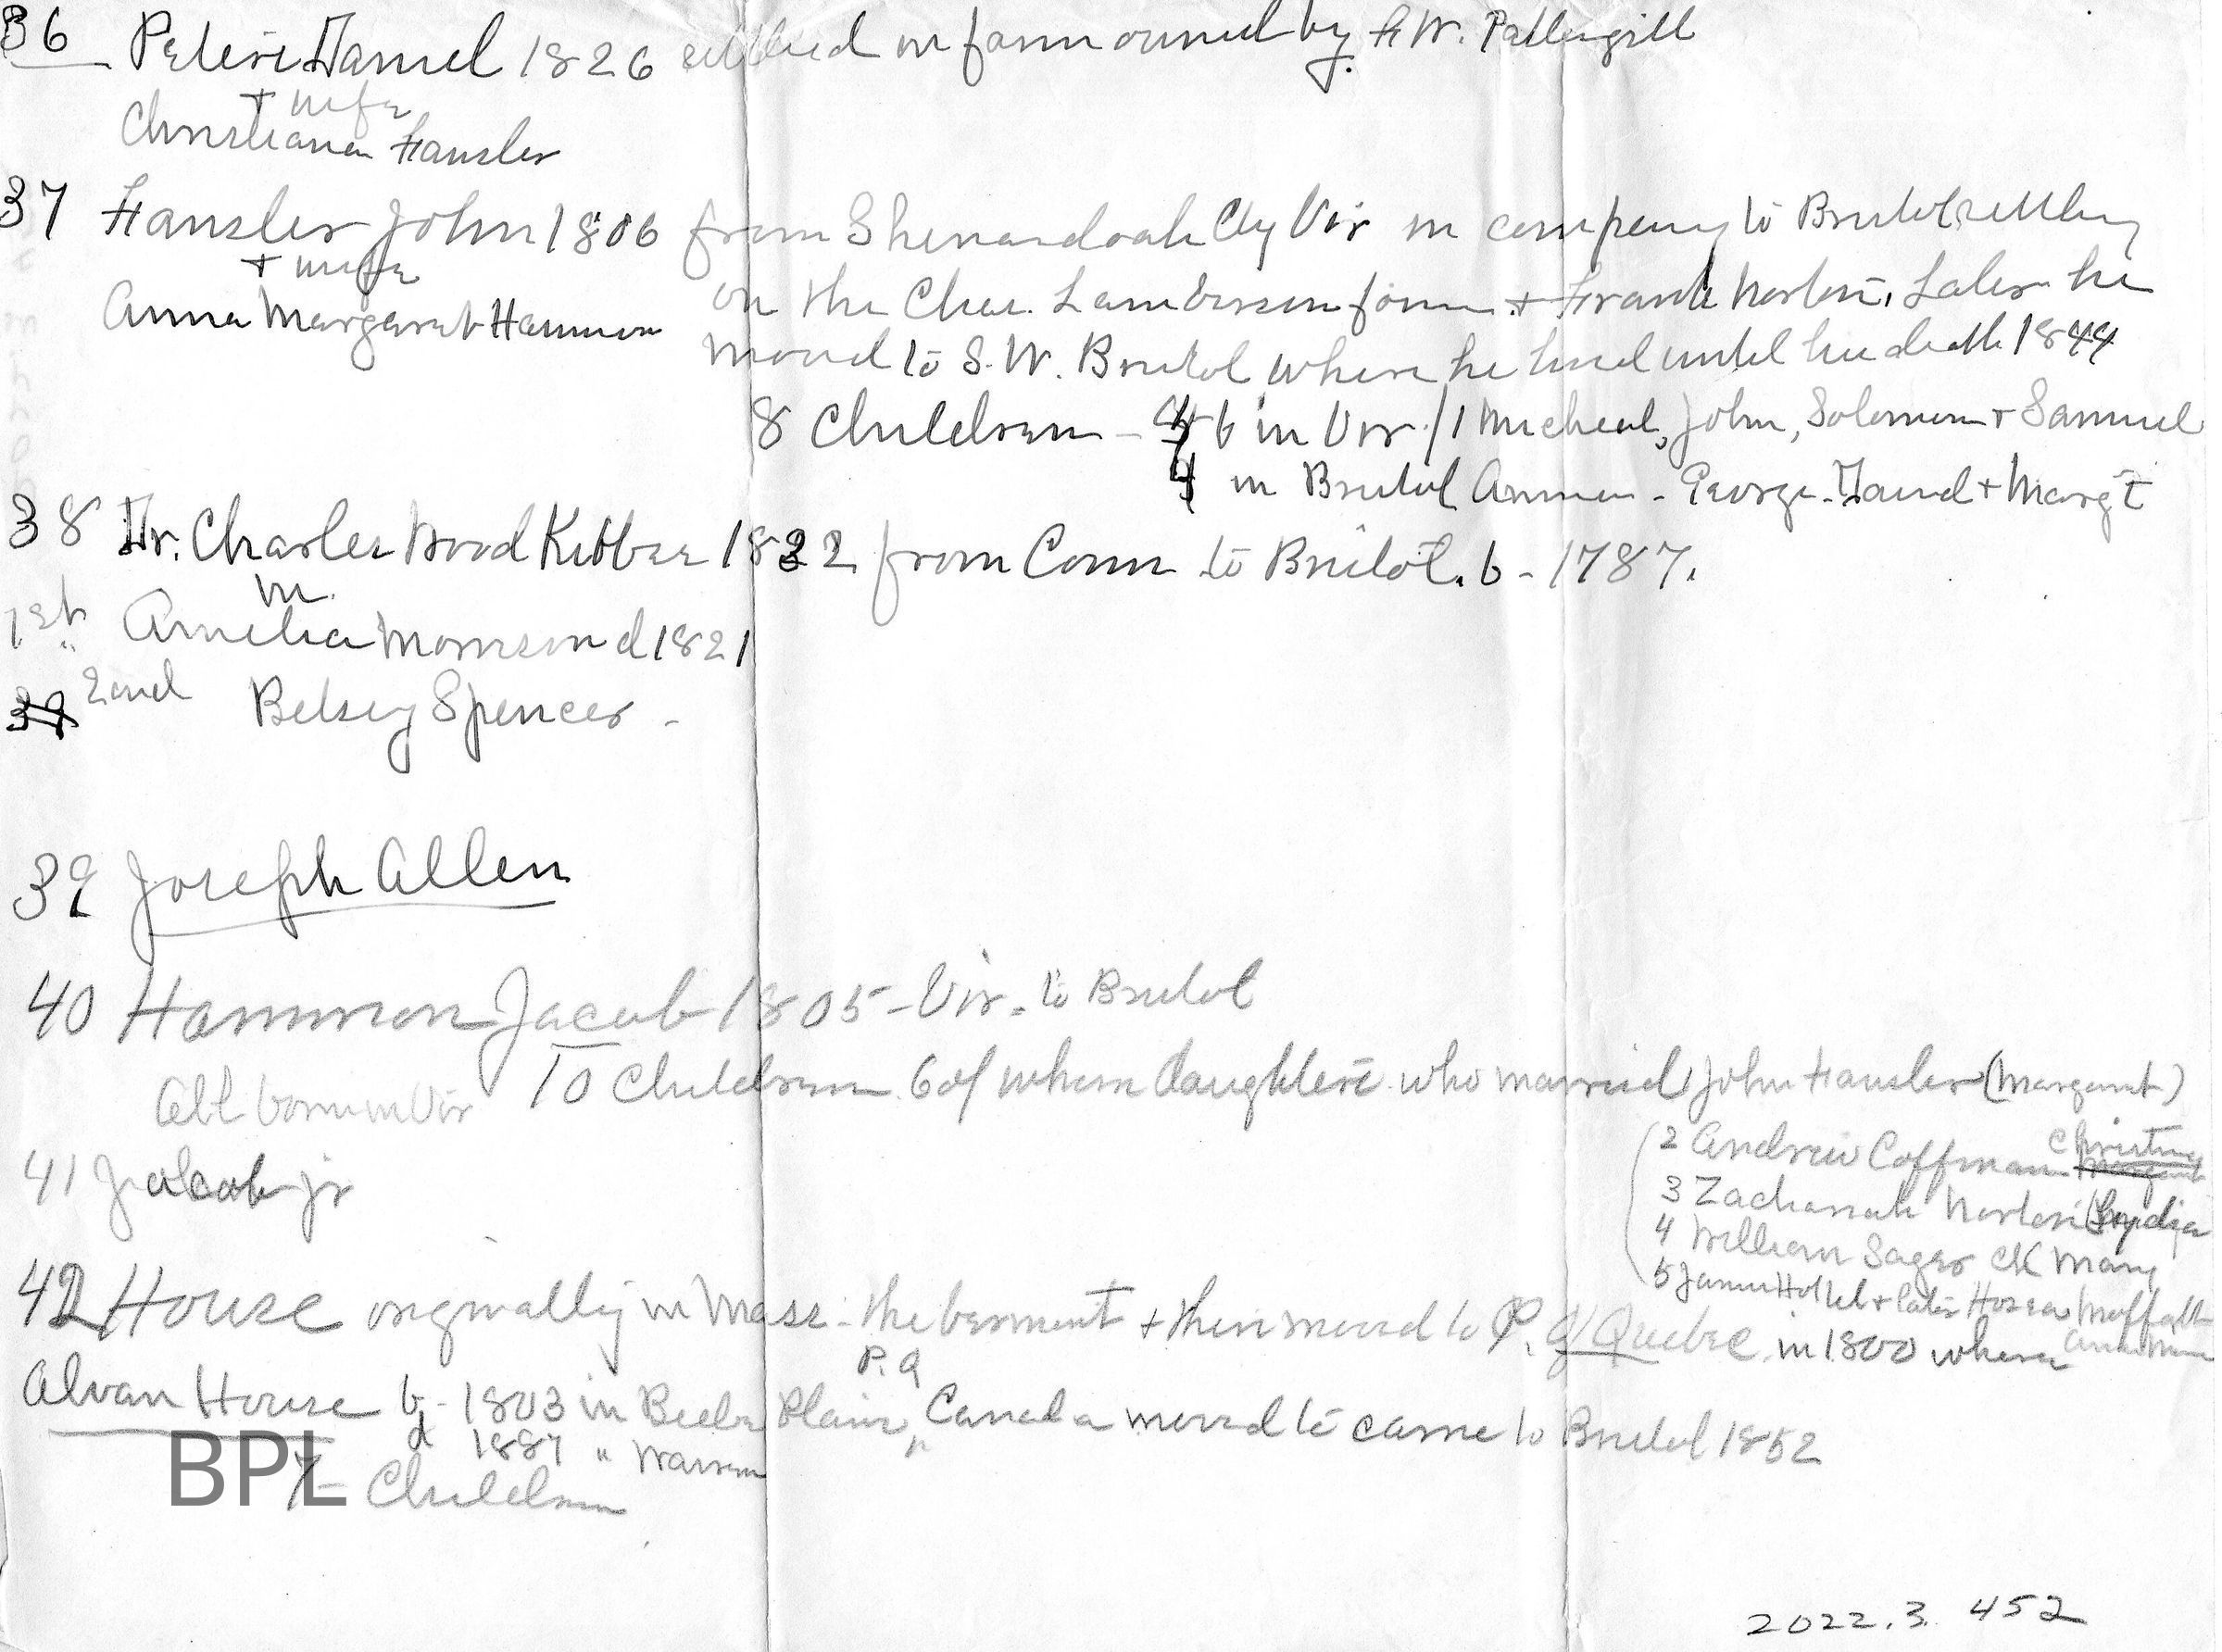 36 Peters Daniel 1826 settled on farm owned by F.W. Pattengill
+ wife
Christiana Fansler
37 Fansler John 1806 from Shenandoah Cty Vir in company to Bristol settling
+ wife
Anna Margaret Hammon on the Chas. Lamberson farm + Frank Norton. Later he
moved to S.W. Bristol where he lived until his death 1844
8 Children - 4 b in Vir /1 Micheal, John, Solomon + Samuel
4 in Bristol Anna - George - David + Marg't
38 Dr. Charles Wood Kibbee 1822 from Conn to Bristol. b - 1787.
m.
1st Amelia Morrison d 1821
39 2and Betsey Spencer -
39 Joseph Allen
40 Hammon Jacob 1805 - Vir. to Bristol
10 Children 6 of whom daughters who married John Fansler (Margaret)
All born in Vir
(2 Andrew Coffman Christina
3 Zachariah Norton (Lydia
41 Jacob jr
4 William Sager Mary
5 James + later Hosea Moffatt
42 House originally in Mass - the Vermont + then moved to P. of Quebec in 1800 where
P.Q
Alvan House b - 1803 in Beebe Plains, Canada moved to came to Bristol 1852
d 1887 " Warren "
7 - Children
BPL
2022.3.452